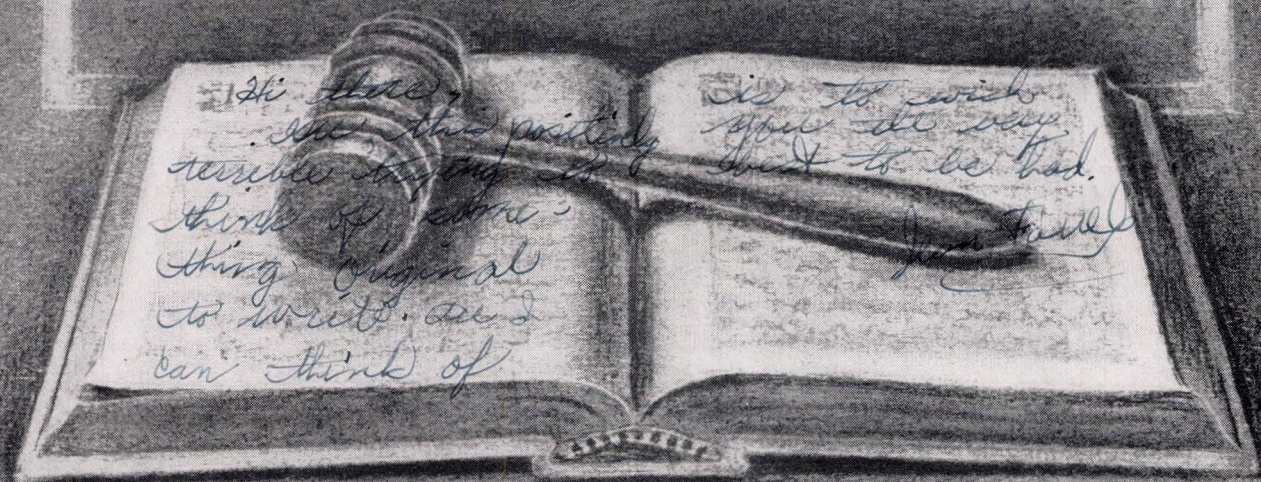 Hi there,
this positively
terrible trying to
think of some-
thing original
to write. All I
can think of
is to wish
you the very
best to be had.